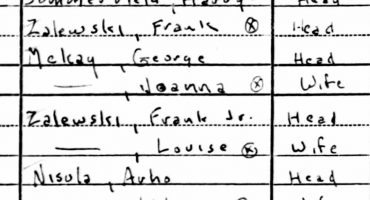 Zalewski, Frank ⓧ Head
McKay, George Head
—, Joanna ⓧ Wife
Zalewski, Frank Jr. Head
—, Louise ⓧ Wife
Nisula, Arho Head